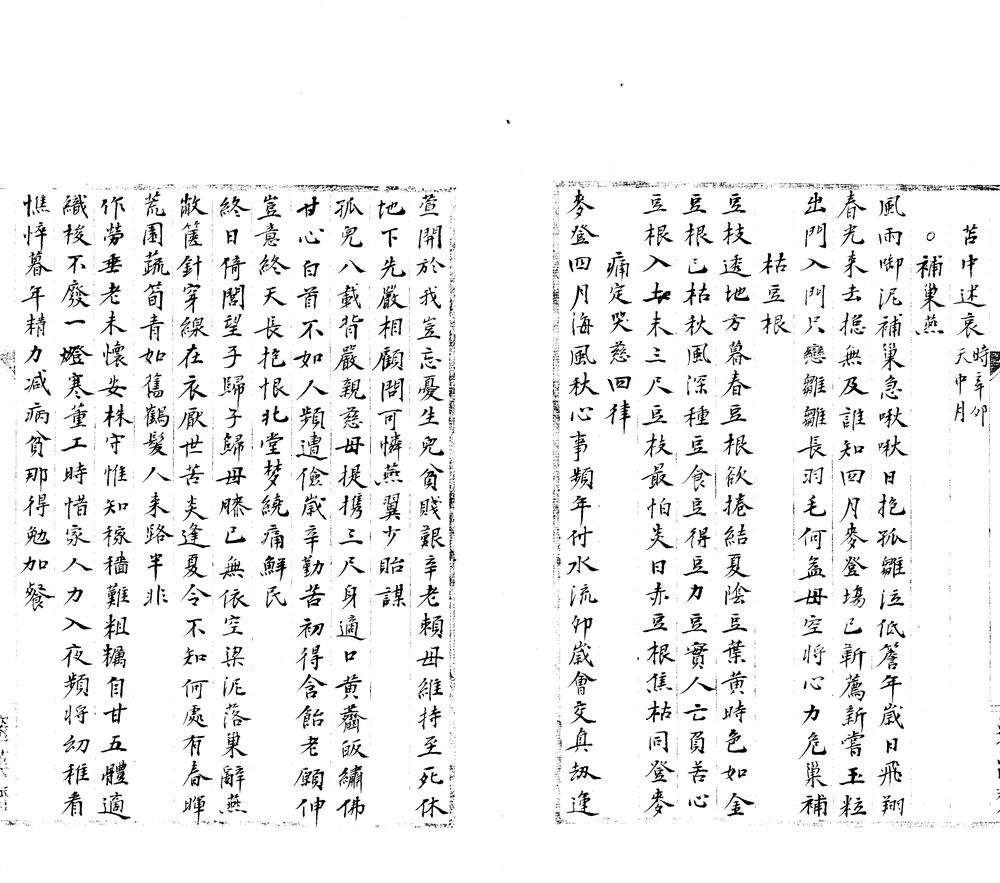 苫中述哀 時辛卯天中月
○補巢燕
風雨啣泥補巢急啾啾日抱孤雛泣低簷年歲日飛翔
春光來去摠無及誰知四月麥登塲已新薦新嘗玉粒
出門入門只戀雛雛長羽毛何益毋空將心力危巢補
枯豆根
豆枝透地方暮春豆根欲捲結夏陰豆葉黃時色如金
豆根已枯秋風深種豆食豆得豆力豆實人亡負苦心
豆根入土未三尺豆枝最怕炎日赤豆根焦枯同登麥
痛定哭慈四律
麥登四月海風秋心事頻年付水流卯歲會交真劫逢
萱開於我豈忘憂生兒貧賤艱辛老賴母維持至死休
地下先嚴相顧問可憐燕翼少貽謀
孤兒八載背嚴親慈母提携三尺身適口黃虀皈繡佛
甘心白首不如人頻遭儉歲辛勤苦初得含飴老願伸
豈意終天長抱恨北堂梦繞痛鮮民
終日倚閭望子歸子歸母膝已無依空梁泥落巢辭燕
敝篋針穿線在衣厭世苦炎逢夏令不知何處有春暉
荒園蔬筍青如舊鶴髮人来路半非
作勞垂老未懷安株守惟知稼穡難粗糲自甘五體適
織梭不廢一燈寒董工時惜家人力入夜頻將幼稚看
憔悴暮年精力減病貧那得勉加餐